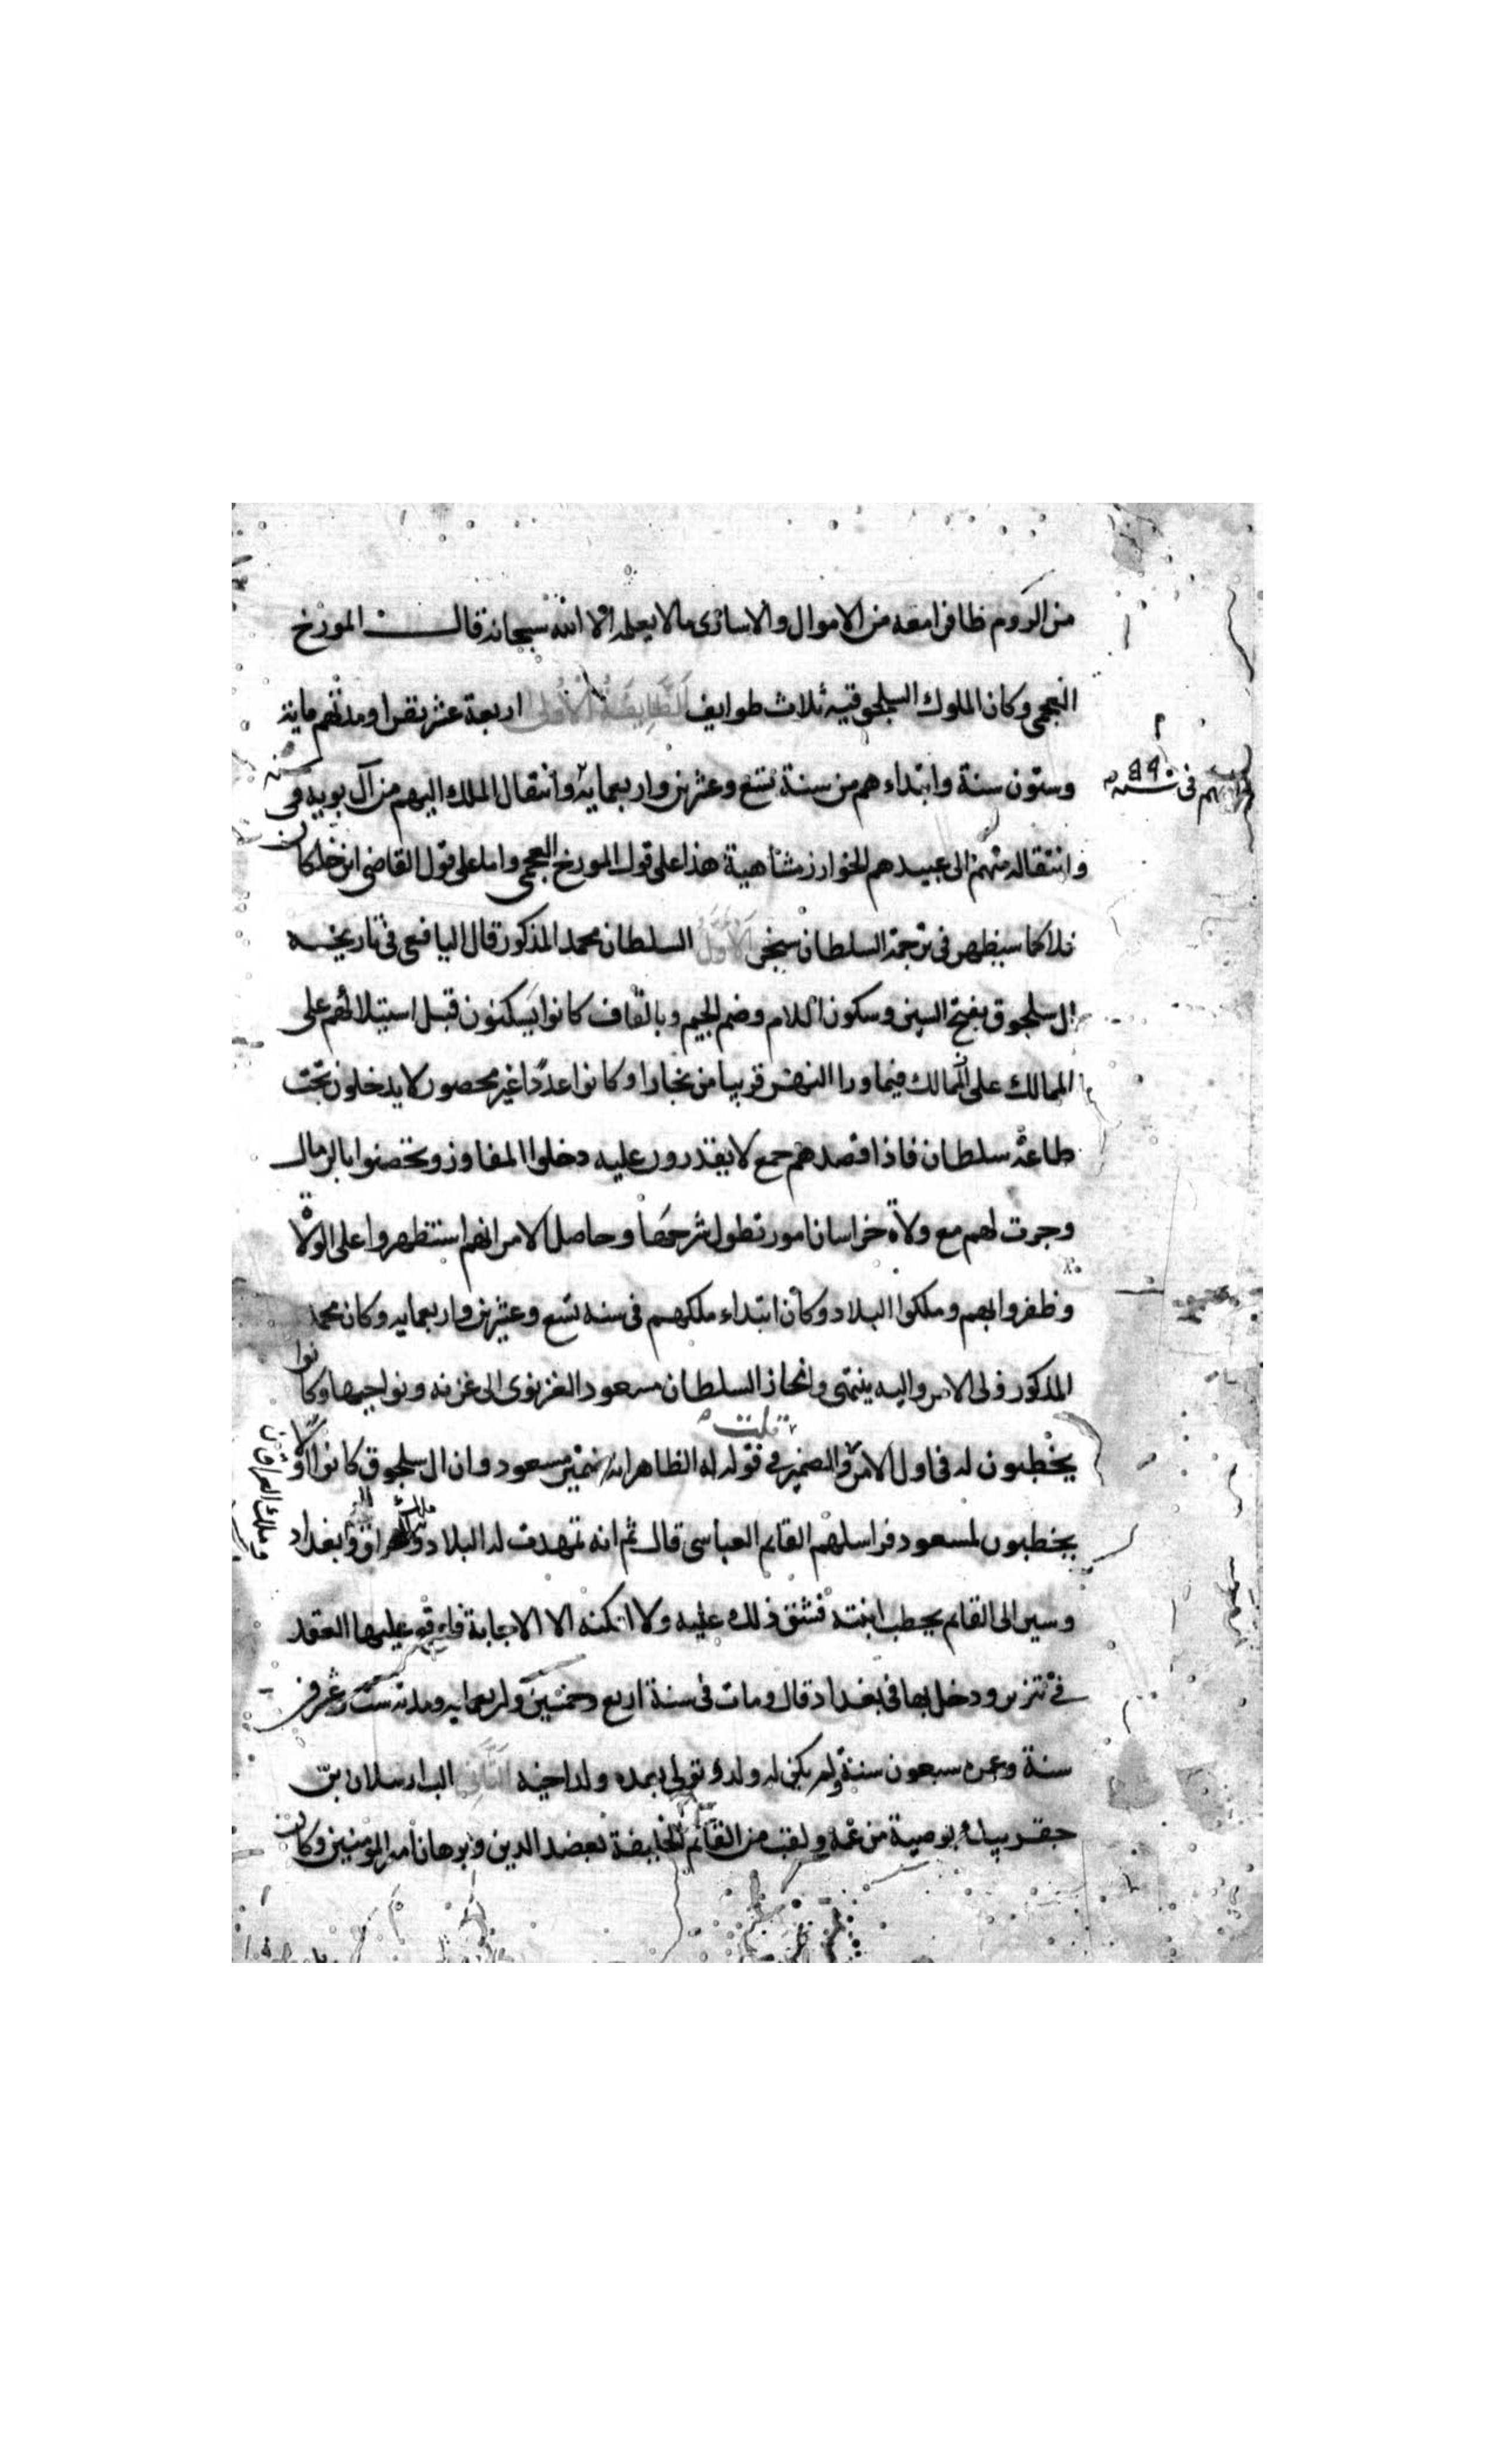 من الروم ظافرا معه من الاموال والاسارى مالا يعلمه الا الله سبحانه قال المورخ
العجمى وكان الملوك السلجوقيه ثلاث طوايف الطايفة الأولى اربعة عشر نفرا ومدتهم ماية
وستون سنة وابتداءهم من سنة تسع وعشرين واربعماية وانتقال الملك اليهم من آل بويه فى
وانتقاله منهم الى عبيدهم الخوارزمشاهية هذا على قول المورخ العجمى واما على قول القاضى ابن خلكان
فلا كما سيظهر فى ترجمة السلطان سنجر الأول السلطان محمد المذكور قال اليافعى فى تاريخه
ال سلجوق بفتح السين وسكون اللام وضم الجيم وبالقاف كانوا يسكنون قبل استيلائهم على
الممالك على الممالك فيما ورا النهر قريبا من بخارا وكانوا عددا غير محصور لا يدخلون تحت
طاعة سلطان فاذا قصدهم جمع لا يقدرون عليه دخلوا المفاوز وتحصنوا بالرمال
وجرت لهم مع ولاة خراسان امور تطول شرحها وحاصل الامر انهم استظهروا على الولاة
وظفروا بهم وملكوا البلاد وكان ابتداء ملكهم فى سنه تسع وعشرين واربعمايه وكان محمد
المذكور ولى الامر واليه ينتمى وانحاز السلطان مسعود الغزنوى الى غزنه ونواحيها وكانوا
قلت
يخطبون له فى اول الامر والضمير فى قوله له الظاهر انه مسعود وان ال سلجوق كانوا اولا
يخطبون لمسعود فراسلهم القايم العباسى قال ثم انه تمهدت له البلاد وملك العراق وبغداد
وملك العراق
وسير الى القايم يخطب ابنته فشق ذلك عليه ولا امكنه الا الاجابة عليها العقد
فى تبريز ودخل بها فى بغداد قال ومات فى سنة اربع وخمسين واربعمايه ومدته ست وعشرون
سنة وعمره سبعون سنة ولم يكن له ولد وتولى بعده ولد اخيه الثانى الب ارسلان بن
جقربيك بوصية من عمه ولقب من القائم الخليفة بعضد الدين وبرهان امير المؤمنين وكان